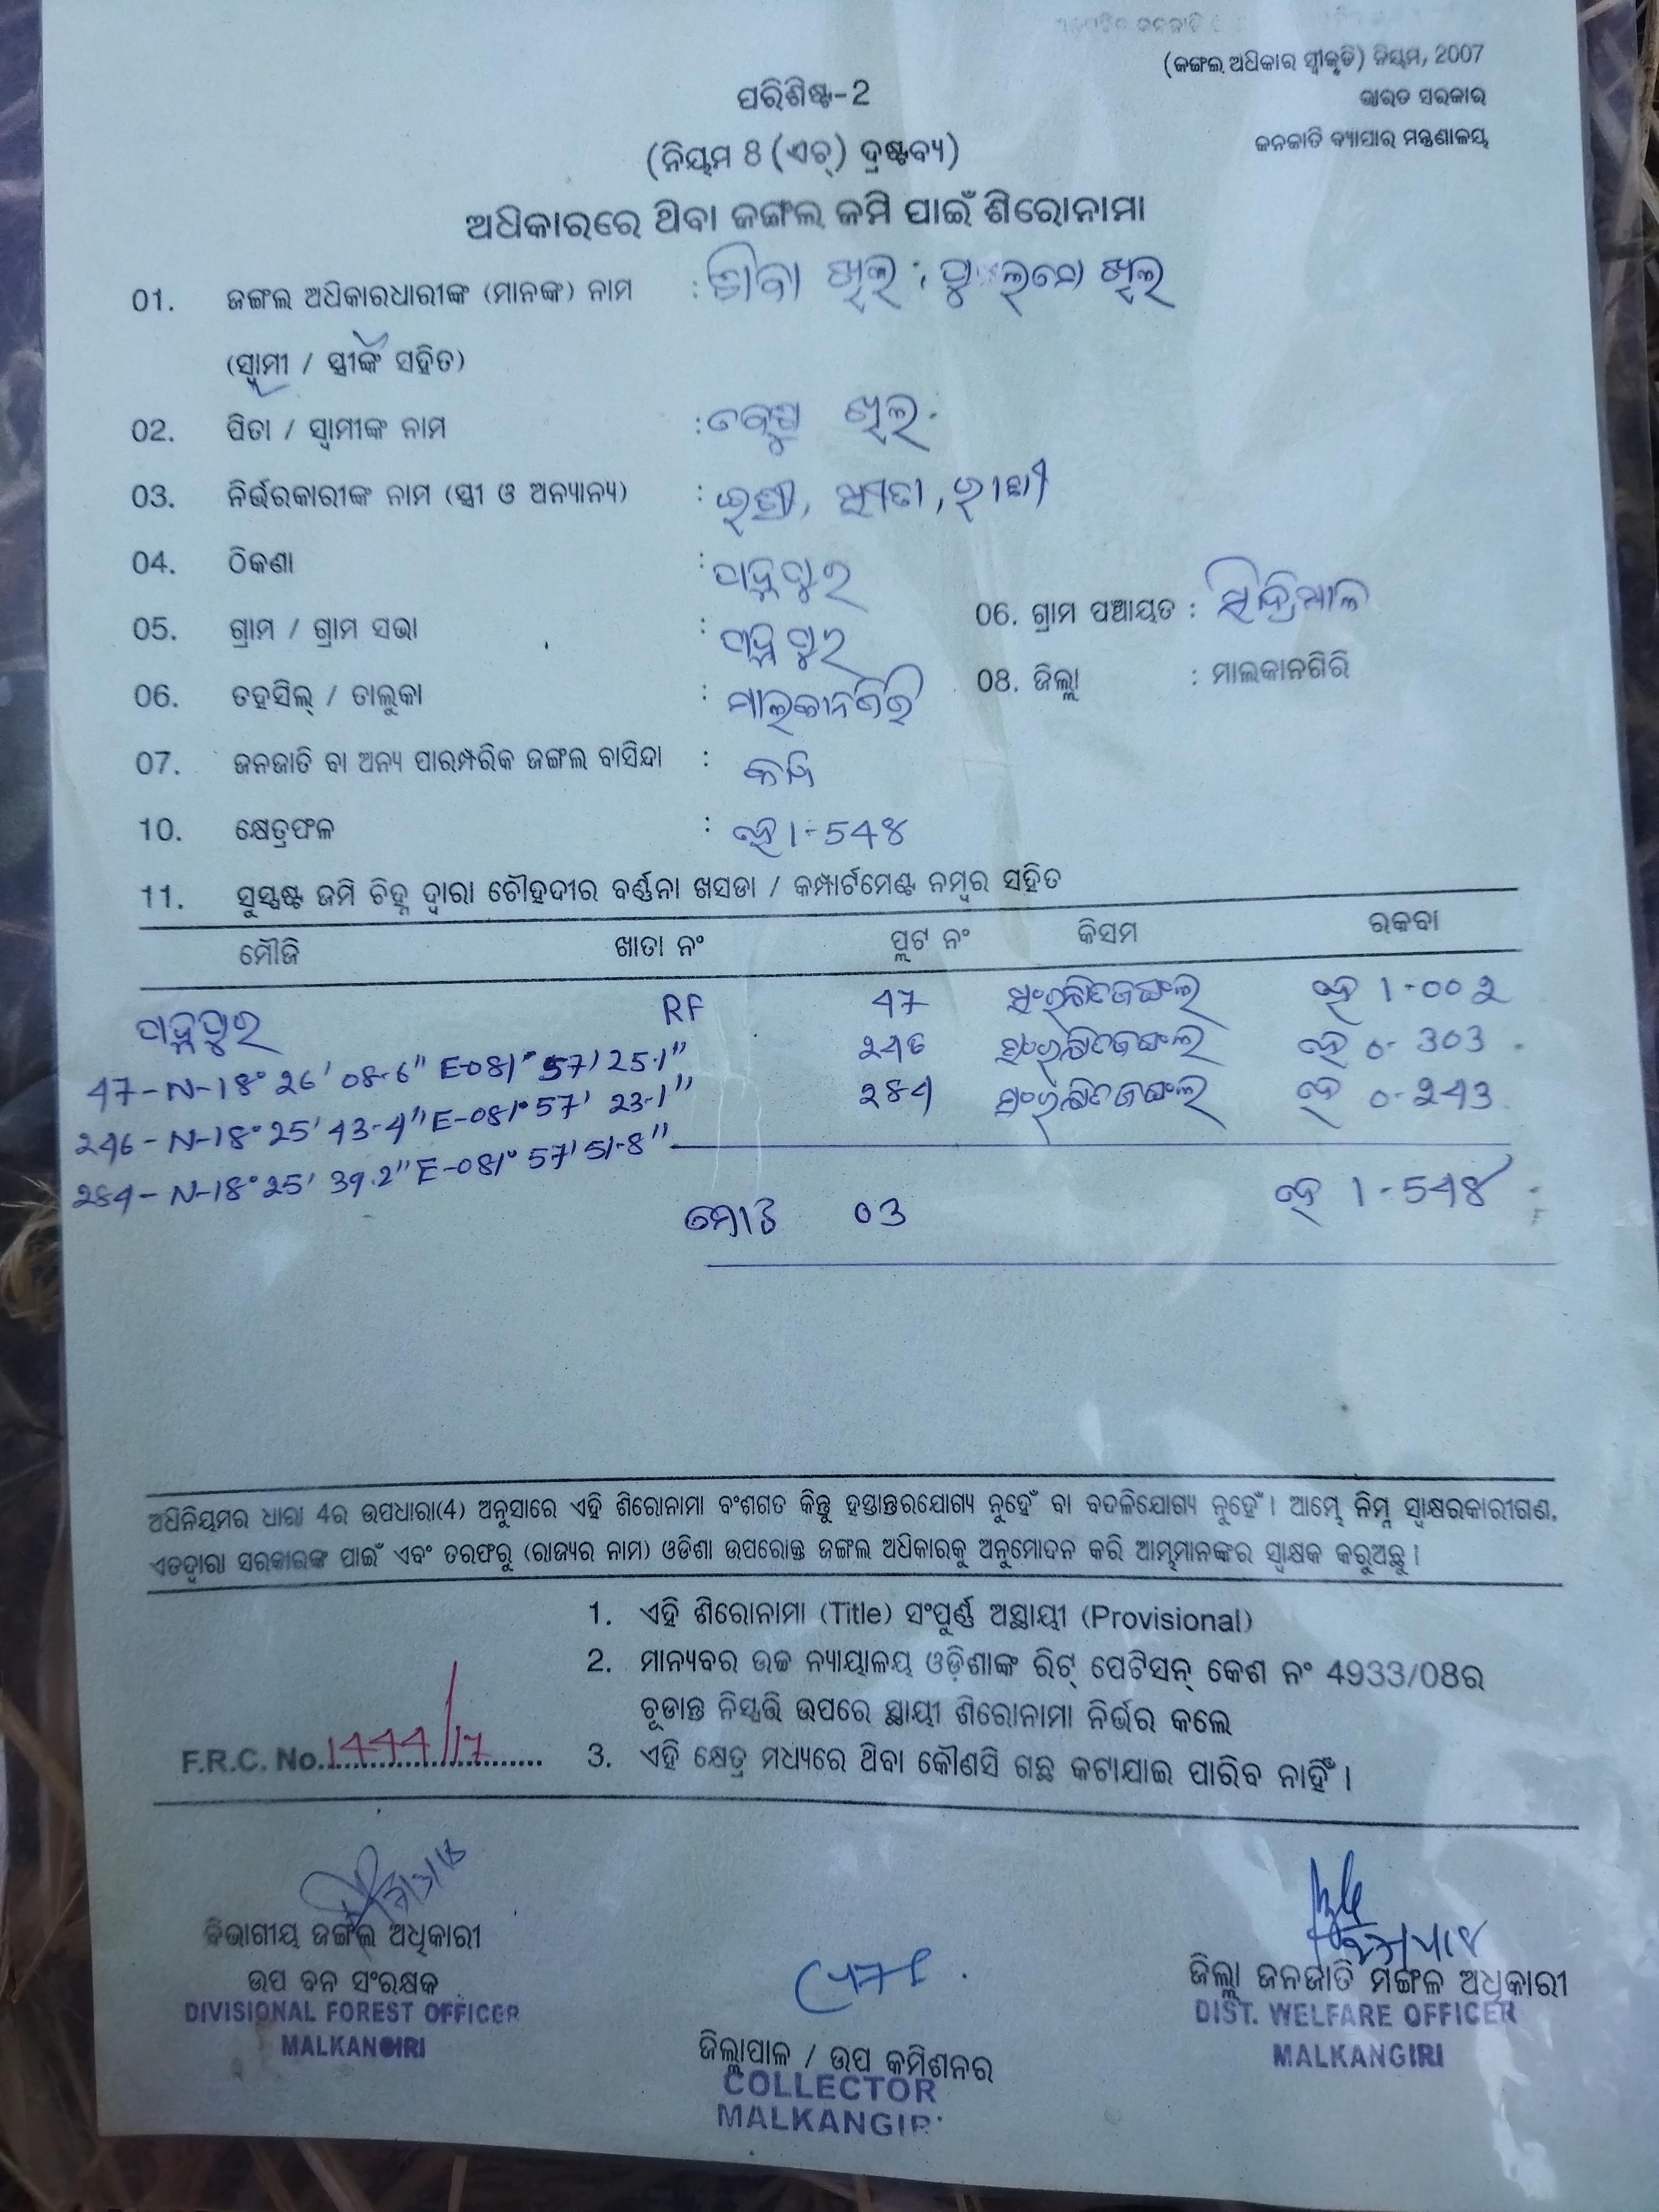 (ଜଙ୍ଗଲ ଅଧିକାର ସ୍ୱୀକୃତି) ନିୟମ, 2007
ଭାରତ ସରକାର
ଜନଜାତି ବ୍ୟାପାର ମନ୍ତ୍ରଣାଳୟ
ପରିଶିଷ୍ଟ-2
(ନିୟମ 8 (ଏଚ୍) ଦ୍ରଷ୍ଟବ୍ୟ)
ଅଧିକାରରେ ଥିବା ଜଙ୍ଗଲ ଜମି ପାଇଁ ଶିରୋନାମା
01. ଜଙ୍ଗଲ ଅଧିକାରଧାରୀଙ୍କ (ମାନଙ୍କ) ନାମ : ଖିଲ ଖିଲ
(ସ୍ୱାମୀ / ସ୍ତ୍ରୀଙ୍କ ସହିତ)
02. ପିତା / ସ୍ୱାମୀଙ୍କ ନାମ : ଖିଲ
03. ନିର୍ଭରକାରୀଙ୍କ ନାମ (ସ୍ତ୍ରୀ ଓ ଅନ୍ୟାନ୍ୟ) :
04. ଠିକଣା :
05. ଗ୍ରାମ / ଗ୍ରାମ ସଭା :
06. ଗ୍ରାମ ପଞ୍ଚାୟତ :
06. ତହସିଲ୍ / ତାଲୁକା : ମାଲକାନଗିରି
08. ଜିଲ୍ଲା : ମାଲକାନଗିରି
07. ଜନଜାତି ବା ଅନ୍ୟ ପାରମ୍ପରିକ ଜଙ୍ଗଲ ବାସିନ୍ଦା :
10. କ୍ଷେତ୍ରଫଳ : ହେ 1-548
11. ସୁସ୍ପଷ୍ଟ ଜମି ଚିହ୍ନ ଦ୍ୱାରା ଚୌହଦୀର ବର୍ଣ୍ଣନା ଖସଡା / କମ୍ପାର୍ଟମେଣ୍ଟ ନମ୍ବର ସହିତ
ମୌଜି ଖାତା ନଂ ପ୍ଲଟ ନଂ କିସମ ରକବା
RF 47 ସଂରକ୍ଷିତ ଜଙ୍ଗଲ ହେ 1-002
47-N-18° 26' 08-6" E-081° 57' 25.1" 246 ସଂରକ୍ଷିତ ଜଙ୍ଗଲ ହେ 0-303
246-N-18° 25' 43-4" E-081° 57' 23-1" 284 ସଂରକ୍ଷିତ ଜଙ୍ଗଲ ହେ 0-243
284-N-18° 25' 39.2" E-081° 57' 51-8"
ମୋଟ 03 ହେ 1-548
ଅଧିନିୟମର ଧାରା 4ର ଉପଧାରା(4) ଅନୁସାରେ ଏହି ଶିରୋନାମା ବଂଶଗତ କିନ୍ତୁ ହସ୍ତାନ୍ତରଯୋଗ୍ୟ ନୁହେଁ ବା ବଦଳିଯୋଗ୍ୟ ନୁହେଁ । ଆମ୍ଭେ ନିମ୍ନ ସ୍ୱାକ୍ଷରକାରୀଗଣ,
ଏତଦ୍ୱାରା ସରକାରଙ୍କ ପାଇଁ ଏବଂ ତରଫରୁ (ରାଜ୍ୟର ନାମ) ଓଡିଶା ଉପରୋକ୍ତ ଜଙ୍ଗଲ ଅଧିକାରକୁ ଅନୁମୋଦନ କରି ଆମ୍ଭମାନଙ୍କର ସ୍ୱାକ୍ଷକ କରୁଅଛୁ ।
1. ଏହି ଶିରୋନାମା (Title) ସଂପୂର୍ଣ୍ଣ ଅସ୍ଥାୟୀ (Provisional)
2. ମାନ୍ୟବର ଉଚ୍ଚ ନ୍ୟାୟାଳୟ ଓଡ଼ିଶାଙ୍କ ରିଟ୍ ପେଟିସନ୍ କେଶ ନଂ 4933/08ର
ଚୂଡାନ୍ତ ନିସ୍ପତ୍ତି ଉପରେ ସ୍ଥାୟୀ ଶିରୋନାମା ନିର୍ଭର କଲେ
F.R.C. No. 1444/17
3. ଏହି କ୍ଷେତ୍ର ମଧ୍ୟରେ ଥିବା କୌଣସି ଗଛ କଟାଯାଇ ପାରିବ ନାହିଁ ।
ବିଭାଗୀୟ ଜଙ୍ଗଲ ଅଧିକାରୀ
ଉପ ବନ ସଂରକ୍ଷକ
DIVISIONAL FOREST OFFICER
MALKANGIRI
ଜିଲ୍ଲାପାଳ / ଉପ କମିଶନର
COLLECTOR
MALKANGIRI
ଜିଲ୍ଲା ଜନଜାତି ମଙ୍ଗଳ ଅଧିକାରୀ
DIST. WELFARE OFFICER
MALKANGIRI